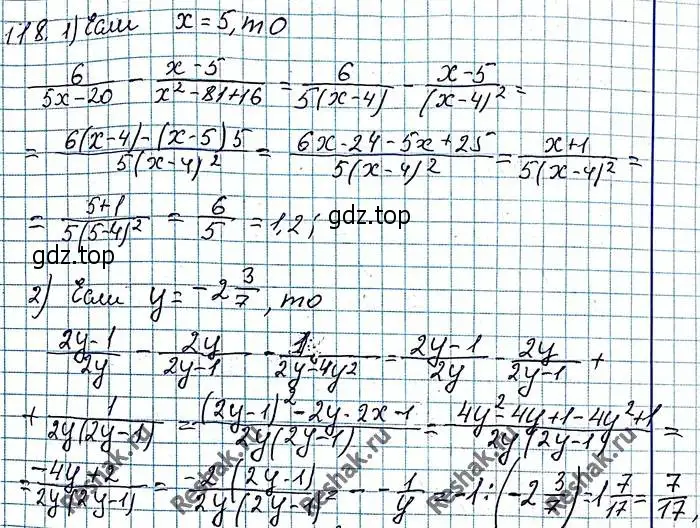 118. 1) Если x = 5, то
6/(5x-20) - (x-5)/(x²-81+16) = 6/(5(x-4)) - (x-5)/(x-4)² =
= (6(x-4)-(x-5)5)/(5(x-4)²) = (6x-24-5x+25)/(5(x-4)²) = (x+1)/(5(x-4)²) =
= (5+1)/(5(5-4)²) = 6/5 = 1,2;
gdz.top
gdz.top
2) Если y = -2 3/7, то
(2y-1)/2y - 2y/(2y-1) - 1/(2y-4y²) = (2y-1)/2y - 2y/(2y-1) +
+ 1/(2y(2y-1)) = ((2y-1)²-2y·2x-1)/(2y(2y-1)) = (4y²-4y+1-4y²+1)/(2y(2y-1)) =
= (-4y+2)/(2y(2y-1)) = -2(2y-1)/(2y(2y-1)) = -1/y = -1:(-2 3/7) = 1 7/17 = 7/17
Reshak.ru
Reshak.ru
Reshak.ru
Reshak.ru